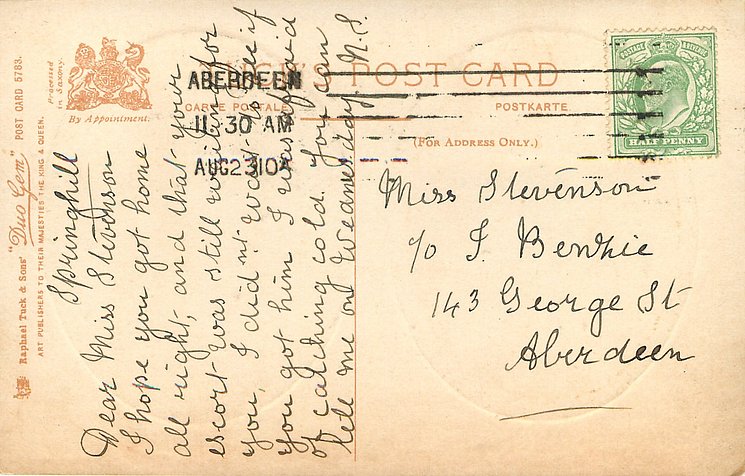 Raphael Tuck & Sons' "Duo Gem" POST CARD 5783.
ART PUBLISHERS TO THEIR MAJESTIES THE KING & QUEEN.
Processed
in Saxony.
By Appointment.
TUCK'S POST CARD
CARTE POSTALE
POSTKARTE.
(FOR ADDRESS ONLY.)
POSTAGE REVENUE
HALF PENNY
ABERDEEN
11.30 AM
AUG 23 10
Springhill
Dear Miss Stevenson
I hope you got home
all right, and that your
escort was still waiting for
you, I did nt wait to see if
you got him I was afraid
of catching cold. You can
tell me on Weanesday N.S.
Miss Stevenson
c/o J. Benzie
143 George St
Aberdeen